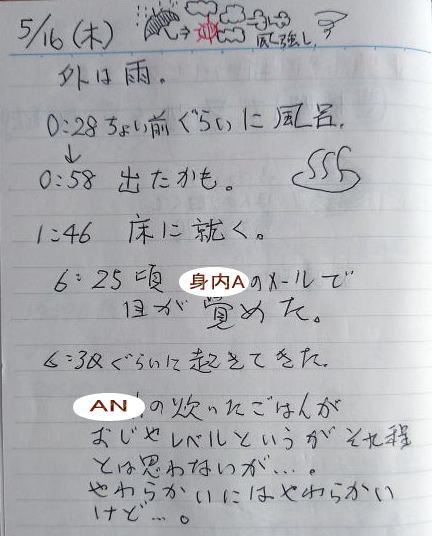 5/16(木)
風強し。
外は雨。
0:28ちょい前ぐらいに風呂。
↓
0:58 出たかも。
1:46 床に就く。
6:25頃 身内Aのメールで
目が覚めた。
6:30ぐらいに起きてきた。
ANの炊いたごはんが
おじやレベルというがそれ程
とは思わないが…。
やわらかいにはやわらかい
けど…。